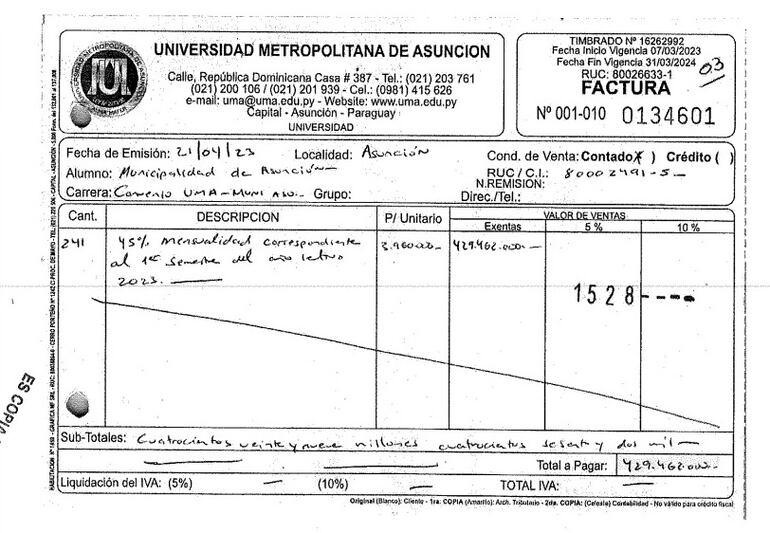 UNIVERSIDAD METROPOLITANA DE ASUNCION
Calle, República Dominicana Casa # 387 - Tel.: (021) 203 761
(021) 200 106 / (021) 201 939 - Cel.: (0981) 415 626
e-mail: uma@uma.edu.py - Website: www.uma.edu.py
Capital - Asunción - Paraguay
UNIVERSIDAD
TIMBRADO Nº 16262992
Fecha Inicio Vigencia 07/03/2023
Fecha Fin Vigencia 31/03/2024
RUC: 80026633-1
03
FACTURA
Nº 001-010 0134601
Fecha de Emisión: 21/04/23 Localidad: Asunción Cond. de Venta: Contado (X) Crédito ( )
Alumno: Municipalidad de Asunción RUC / C.I.: 80002491-5
N.REMISION:
Carrera: Convenio UMA-Muni Aso. Grupo: Direc./Tel.:
Cant. DESCRIPCION P/ Unitario VALOR DE VENTAS
Exentas 5 % 10 %
241 45% mensualidad correspondiente 3.960.000 429.462.000
al 1er semestre del año letivo
2023.
1528----
ES COPIA
Sub-Totales: Cuatrocientos veinte y nueve millones cuatrocientos sesent y dos mil
Total a Pagar: 429.462.000
Liquidación del IVA: (5%) (10%) TOTAL IVA:
Original (Blanco): Cliente - 1ra. COPIA (Amarillo): Arch. Tributario - 2da. COPIA: (Celeste) Contabilidad - No válido para crédito fiscal